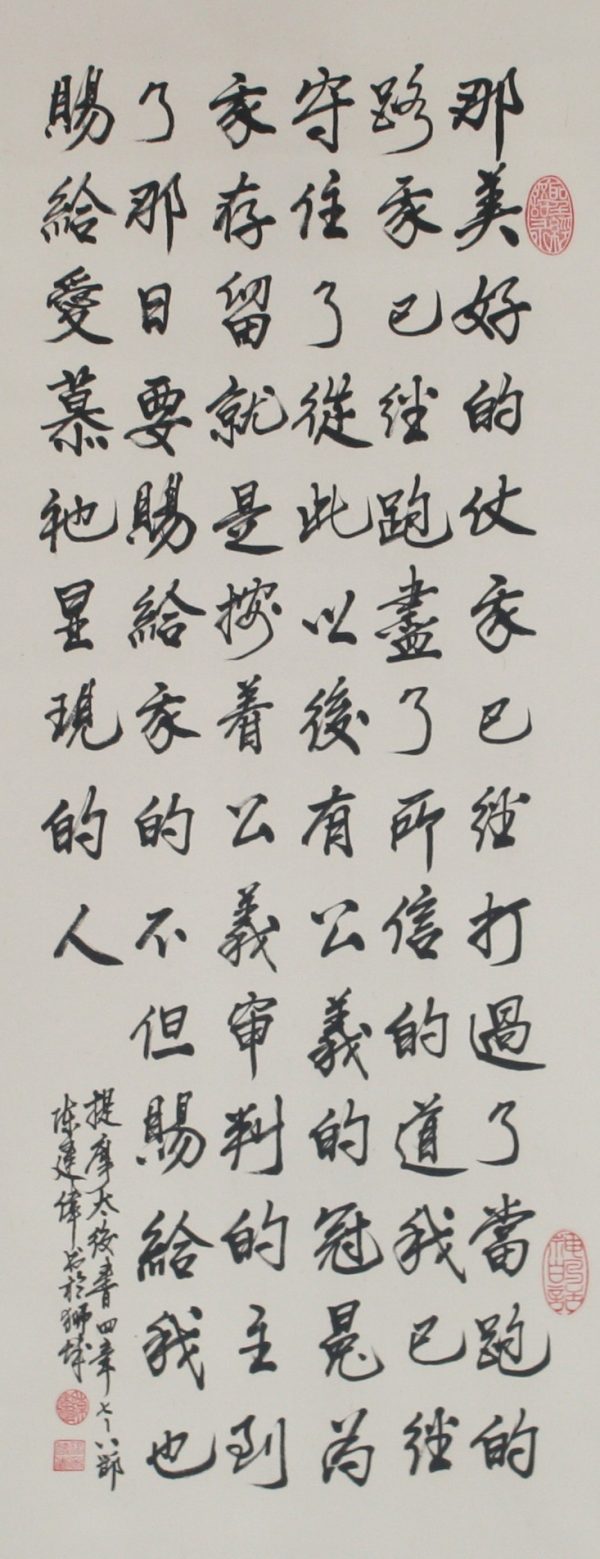 那美好的仗我已經打過了當跑的
路我已經跑盡了所信的道我已經
守住了從此以後有公義的冠冕為
我存留就是按着公義审判的主到
了那日要賜給我的不但賜給我也
賜給愛慕祂显現的人
提摩太後書四章七~八節
陈建偉书於狮城